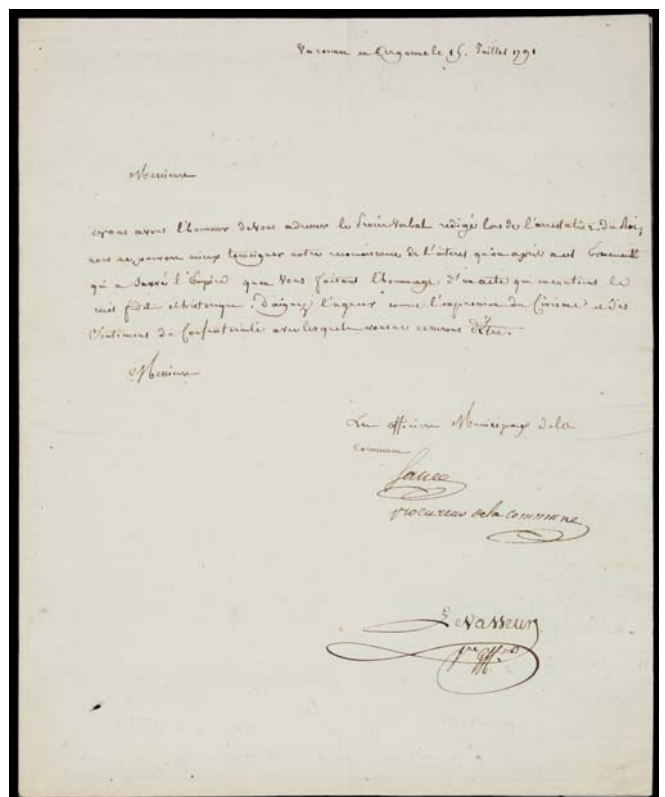 Varennes en Argonne le 15. Juillet 1791
Messieurs
nous avons l'honneur de vous adresser le Procès Verbal redigé lors de l'arrestation du Roi,
nous ne pouvons mieux temoigner notre reconnoissance de l'interet qu'on a pris a cet Evenement
qui a Sauvé l'Empire qu'en Vous faisant l'hommage d'un acte qui en contient le
recit fidel et historique. Daignez l'agreer comme l'expression du Civisme et des
Sentimens de Confraternité avec lesquels nous ne cesserons d'être.
Messieurs
Les officiers Municipaux de la
Commune
Sauce
procureur de la commune
Levasseur